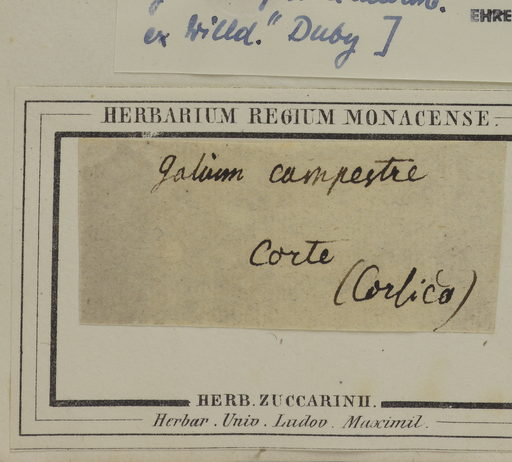 ex Willd." Duby ]
EHRE
HERBARIUM REGIUM MONACENSE.
Galium campestre
Corte
(Corsica)
HERB. ZUCCARINII.
Herbar. Univ. Ludov. Maximil.